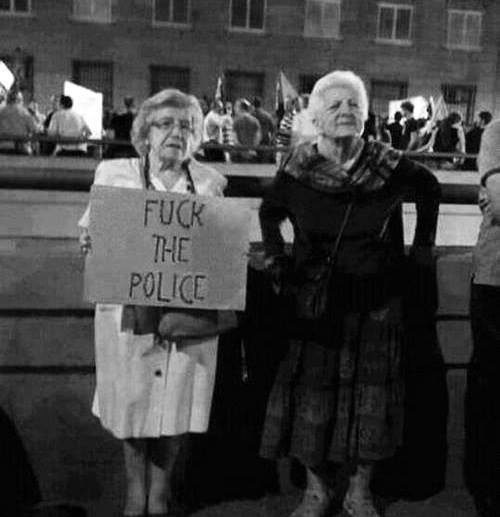 FUCK
THE
POLICE